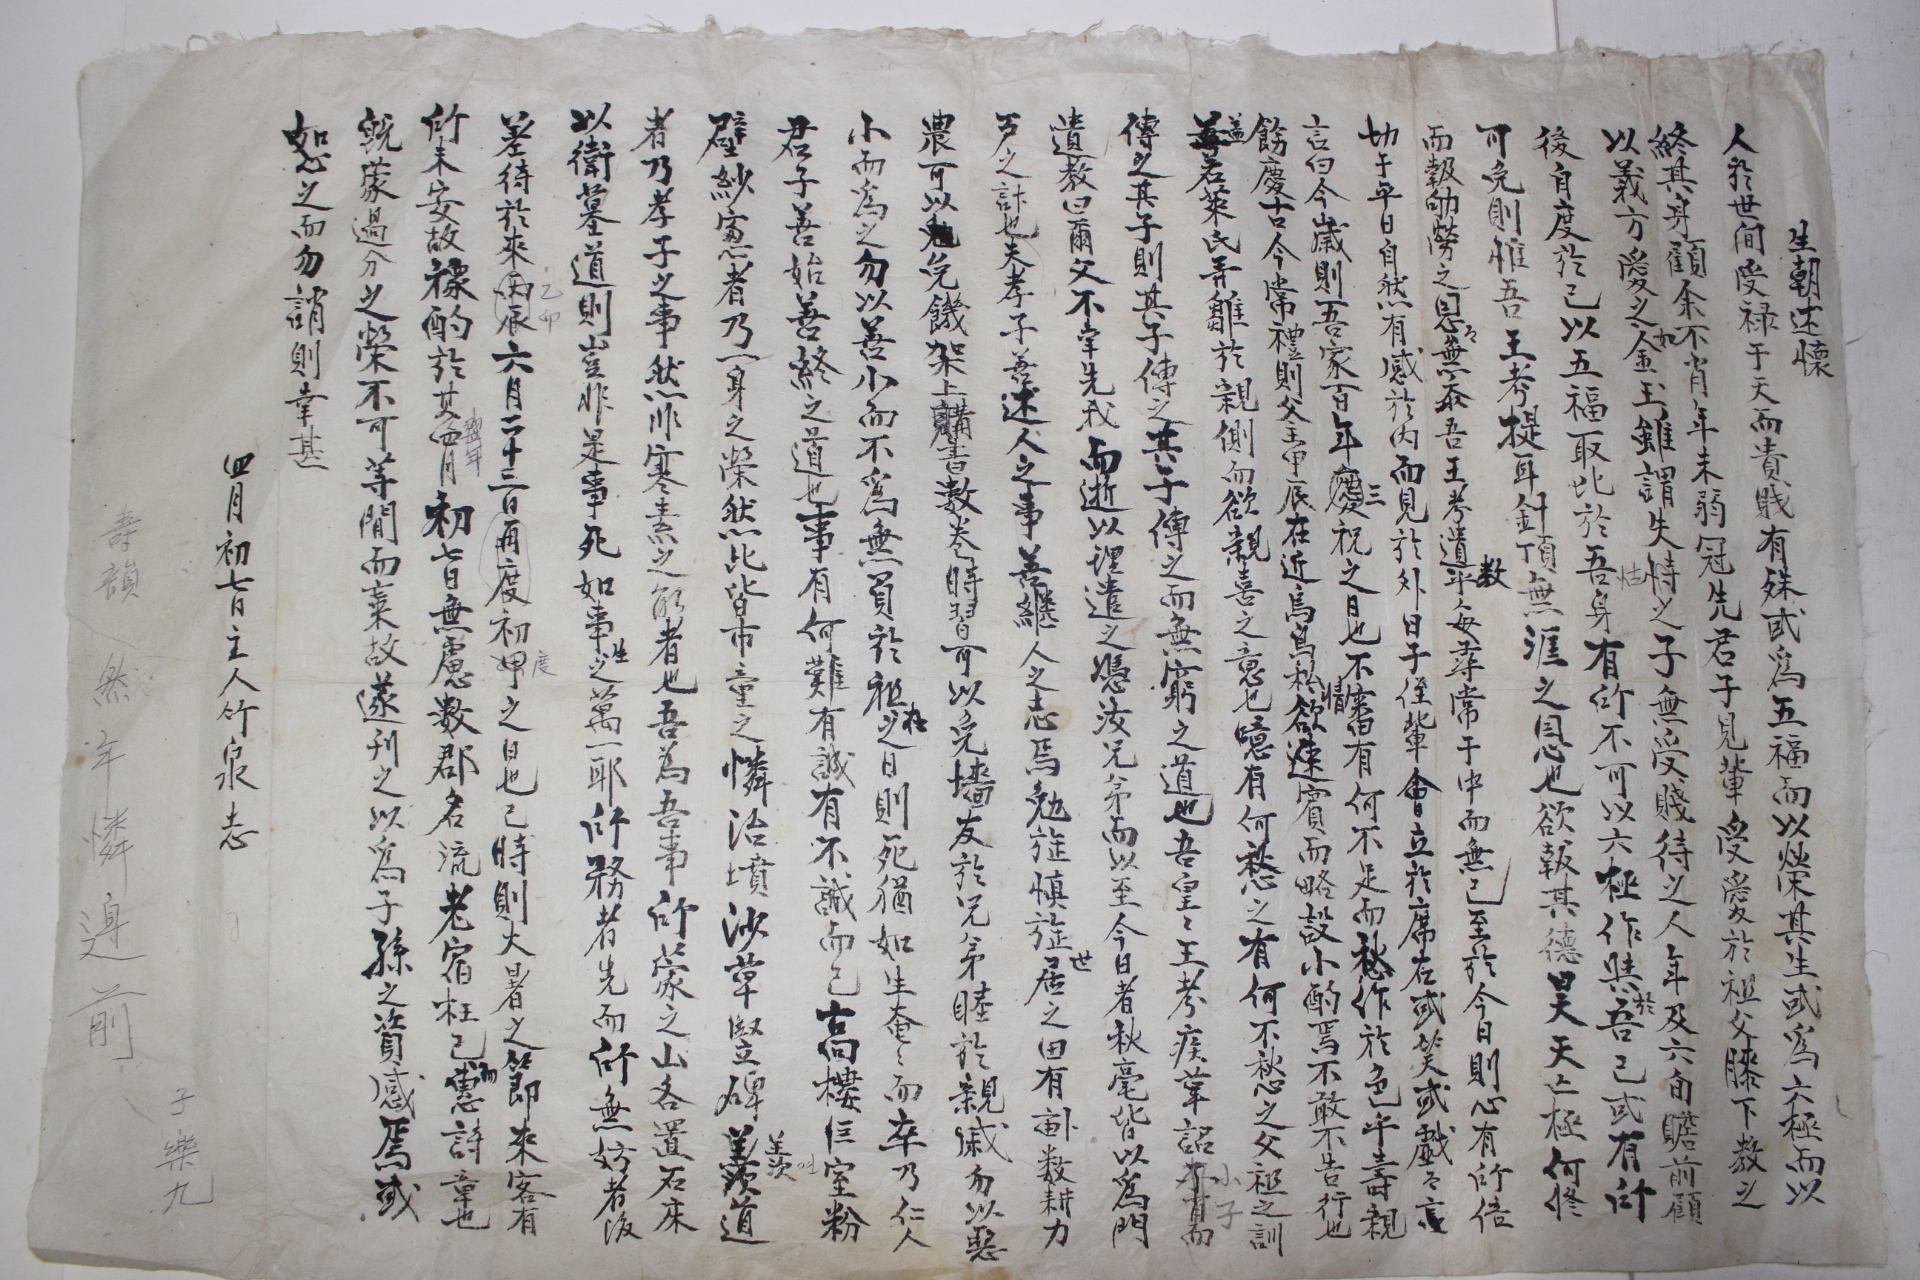 生朝述懷
人於世间受禄于天而貴賎有殊或爲五福而以榮其生或爲六極而以
終其身顧余不肖年未弱冠先君子見軰受爱於祖父膝下教之
以義方爱之如金玉雖謂失怙恃之子無受賤待之人年及六旬瞻前顧
後自度於己以五福取比於吾身有所不可以六極作與於吾己或有所
可免則惟吾王考提耳釘頂無涯之恩也欲報其德昊天亡極何修
而報劬勞之恩無忝吾王考遺教乎每尋常于中而無已至於今日則心有所倍
切乎平日自然有感於內而見於外日子侄軰會立於席右或笑或戱之言
言曰今歲則吾家百年三慶祝之日也不審有何不足而愁作於色乎壽親
餘慶古今常禮則父主甲辰在近烏鳥私情欲速賓而略設小酌焉不敢不告行也
盖若萊氏弄雛於親側而欲親喜之意也噫有何愁之有何不愁之父祖之訓
傳之其子則其子傳之其子傳之而無窮之道也吾皇王考疾革詔小子而
遺教曰爾父不幸先我而逝以理遣之憑汝兄弟而以至今日者秋毫皆以爲門
戸之計也夫孝子善述人之事善継人之志焉勉旃慎旃居世之田有畝数耕力
農可以勉免饑架上購書数巻時習可以免墻友於兄弟睦於親戚勿以惡
小而爲之勿以善小而不爲無買於祖之日則死猶如生奄之而卒乃仁人
君子善始善終之道也事有何難有誠有不誠而已高樓仨室粉
壁紗窓者乃一身之榮然此皆市童之憐治墳沙草竪碑羨道
者乃孝子之事然非寒素之能者也吾爲吾事所蒙之山各置石床
以衛墓道則豈非是事死如事生之萬一耶所務者先而所無妨者後
差待於來乙卯丙辰六月二十三日再度初甲之日也已時則大暑之節來客有
所未安故稼酌於其翌年四月初七日無慮数郡名流老宿枉己而惠詩章也
既蒙過分之榮不可等閒而棄故遂刊之以爲子孫之資感焉或
恕之而勿誚則幸甚
四月初七日主人竹泉志
壽韻 然年憐邊前
子樂九